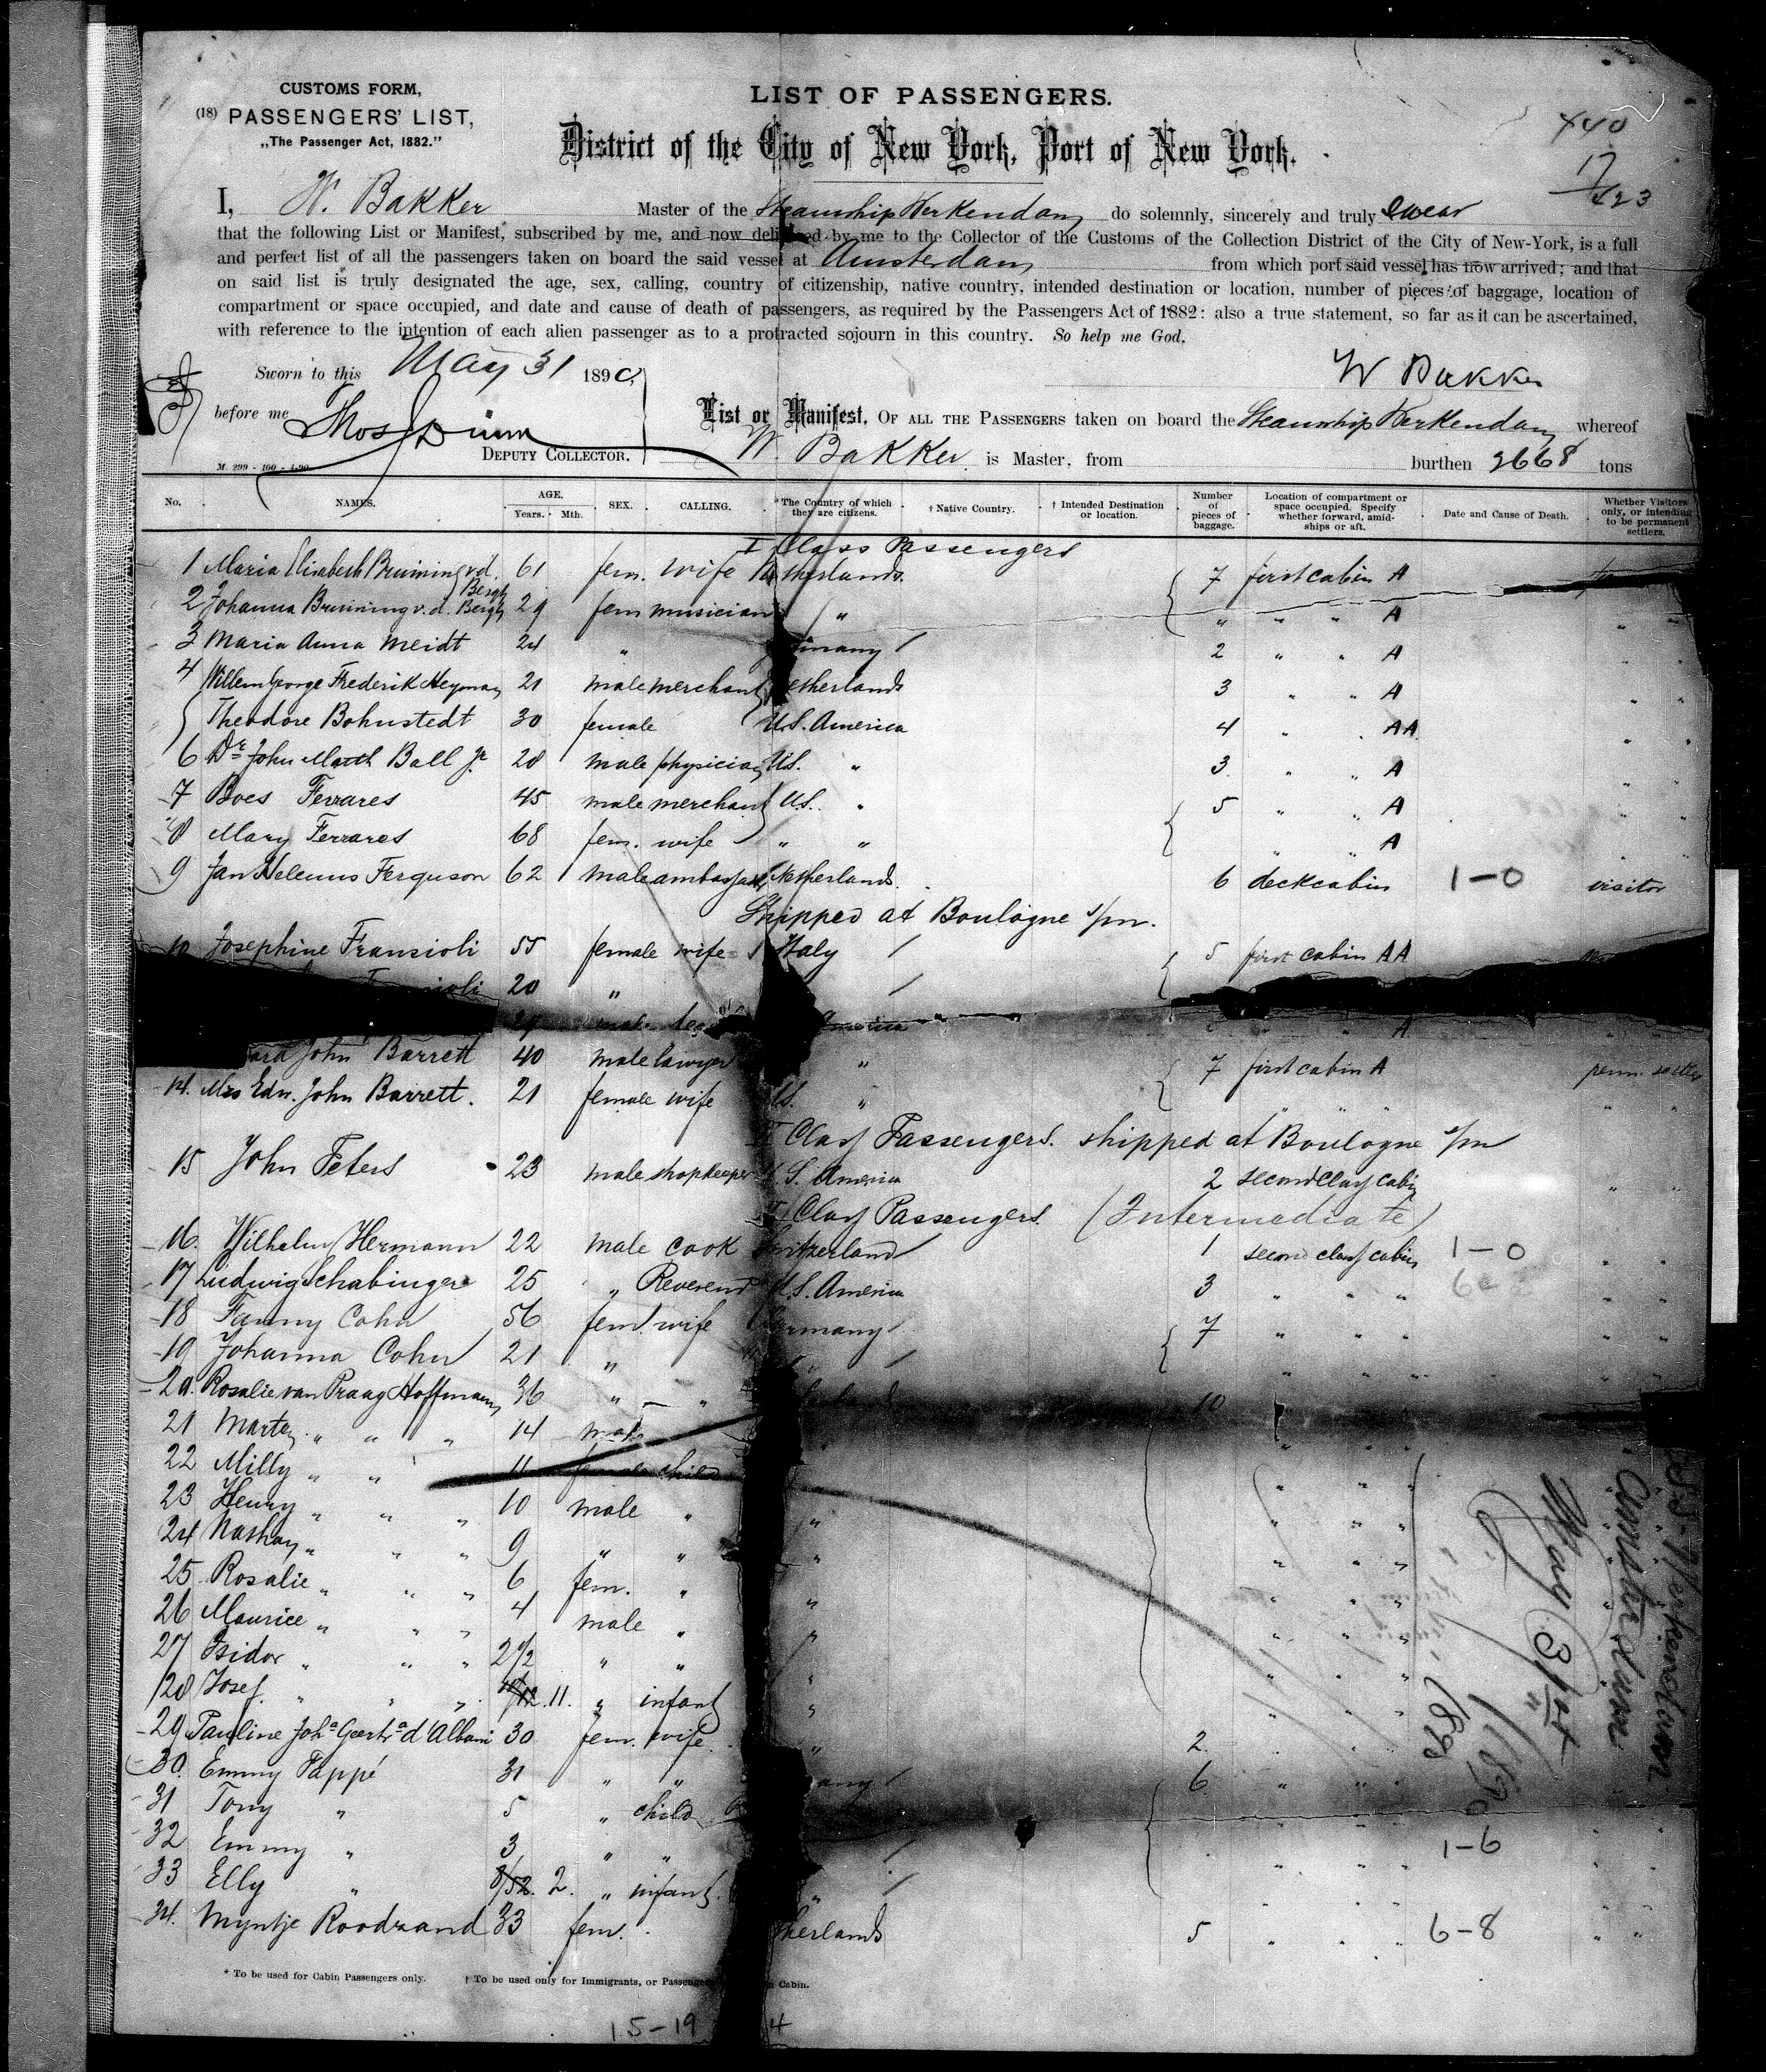 CUSTOMS FORM,
(18) PASSENGERS' LIST,
„The Passenger Act, 1882."
LIST OF PASSENGERS.
District of the City of New York, Port of New York.
440
17
423
I, W. Bakker Master of the Steamship Werkendam do solemnly, sincerely and truly swear
that the following List or Manifest, subscribed by me, and now delivered by me to the Collector of the Customs of the Collection District of the City of New-York, is a full
and perfect list of all the passengers taken on board the said vessel at Amsterdam from which port said vessel has now arrived; and that
on said list is truly designated the age, sex, calling, country of citizenship, native country, intended destination or location, number of pieces of baggage, location of
compartment or space occupied, and date and cause of death of passengers, as required by the Passengers Act of 1882: also a true statement, so far as it can be ascertained,
with reference to the intention of each alien passenger as to a protracted sojourn in this country. So help me God.
Sworn to this May 31 1890, W Bakker
before me Thos J Dunn
DEPUTY COLLECTOR.
M. 299 - 100 - 4.90
List or Manifest, OF ALL THE PASSENGERS taken on board the Steamship Werkendam whereof
W. Bakker is Master, from burthen 3668 tons
No. NAMES. AGE. Years. Mth. SEX. CALLING. * The Country of which they are citizens. † Native Country. † Intended Destination or location. Number of pieces of baggage. Location of compartment or space occupied. Specify whether forward, amidships or aft. Date and Cause of Death. Whether Visitors only, or intending to be permanent settlers.
I Class Passengers
1 Maria Elisabeth Bruining v.d. Bergh 61 fem. wife Netherlands 7 first cabin A
2 Johanna Bruining v.d. Bergh 29 fem musician " " " " A
3 Maria Anna Meidt 24 " Germany 2 " " A
4 Willem George Frederik Heyman 21 male merchant Netherlands 3 " " A
Theodore Bohnstedt 30 female U.S. America 4 " AA
6 Dr John Marth Ball Jr 28 male physician U.S. " 3 " " A
7 Boes Ferrares 45 male merchant U.S. " 5 " " A
8 Mary Ferrares 68 fem. wife " " " " A
9 Jan Helenus Ferguson 62 male Netherlands. 6 deckcabin 1-0 visitor
Shipped at Boulogne s/m.
10 Josephine Fransioli 55 female wife Italy 5 first cabin AA
20 "
29 male America " " A
John Barrett 40 male lawyer " 7 first cabin A perm. settler
14. Mrs Edw. John Barrett. 21 female wife U.S. " " " "
II Class Passengers. shipped at Boulogne s/m
15 John Peters 23 male shopkeeper U.S. America 2 second class cabin
II Class Passengers. (Intermediate)
16. Wilhelm Hermann 22 male cook Switzerland 1 second class cabin 1-0
17 Ludwig Schabinger 25 " Reverend U.S. America 3 " " "
18 Fanny Cohn 56 fem. wife Germany 7 " " "
19 Johanna Cohn 21 " " " " "
20. Rosalie van Praag Hoffmann 36 " " 10
21 " " " 14 male " " "
22 Milly " " 11 female child " " "
23 Henry " " " 10 male " " " " "
24 Nathan " " " 9 " " " " " "
25 Rosalie " " " 6 fem. " " " " "
26 Maurice " " " 4 male " " " " "
27 Isidor " " " 2 1/2 " " " " " "
28 Josef " " " 11. " infant " " " "
29 Pauline Joha Geertra d'Albani 30 fem. wife " 2. " " "
30. Emmy Pappé 31 " " 6 " " "
31 Tony " 5 " child " " "
32 Emmy " 3 " " " " " 1-6
33 Elly " 8/52. 2. " infant. " " " "
34. Myntje Roodzand 33 fem. Netherlands 5 " " " 6-8
SS. Werkendam
Amsterdam
May 31st 1890
1890
* To be used for Cabin Passengers only. † To be used only for Immigrants, or Passengers Cabin.
15-19 4